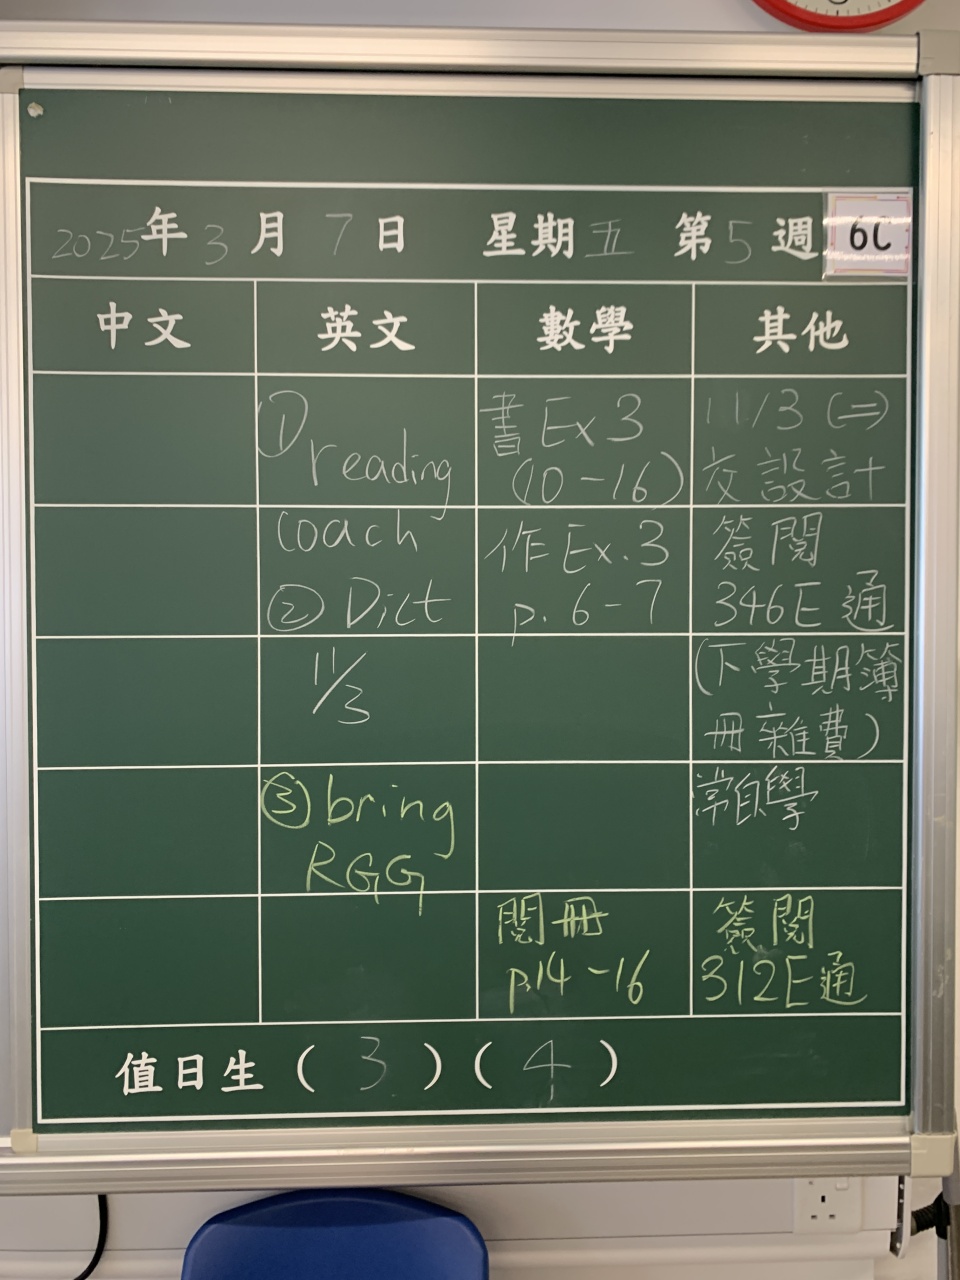 2025年3月7日 星期五 第5週 6C
中文 英文 數學 其他
① reading
coach
② Dict
11/3
③ bring
RGG
書 Ex 3
(10-16)
作 Ex. 3
p. 6-7
閱冊
p.14-16
11/3 (二)
交設計
簽閱
346E通
(下學期簿
冊雜費)
常自學
簽閱
312E通
值日生 ( 3 ) ( 4 )